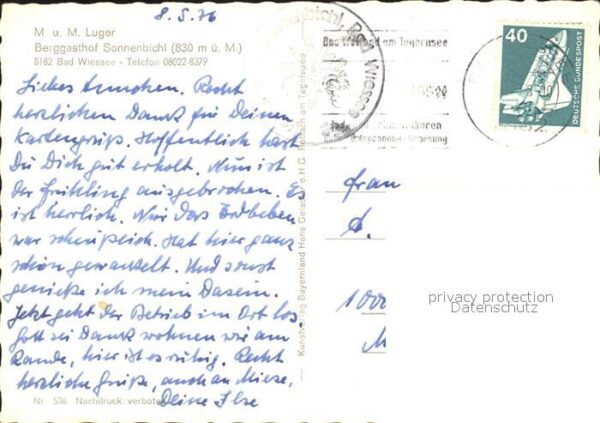 8.5.76
M. u. M. Luger
Berggasthof Sonnenbichl (830 m ü. M.)
8182 Bad Wiessee - Telefon 08022-8379
Liebes Annchen. Recht
herzlichen Dank für Deinen
Kartengruß. Hoffentlich hast
Du Dich gut erholt. Nun ist
der Frühling ausgebrochen. Es
ist herrlich. Nur das Erdbeben
war scheußlich. Hat hier ganz
schön gewackelt. Und sonst
genieße ich mein Dasein.
Jetzt geht der Betrieb im Ort los
gott sei Dank wohnen wir am
Rande, hier ist es ruhig. Recht
herzliche Grüße, auch an Miese,
Deine Ilse
Nr. 536 Nachdruck verboten
Kunstverlag Bayernland Hans Geisler o.H.G. Rottach am Tegernsee
Sonnenbichl, Bad Wiessee
am Tegernsee
40
DEUTSCHE BUNDESPOST
Frau
A.
1000
M
privacy protection
Datenschutz